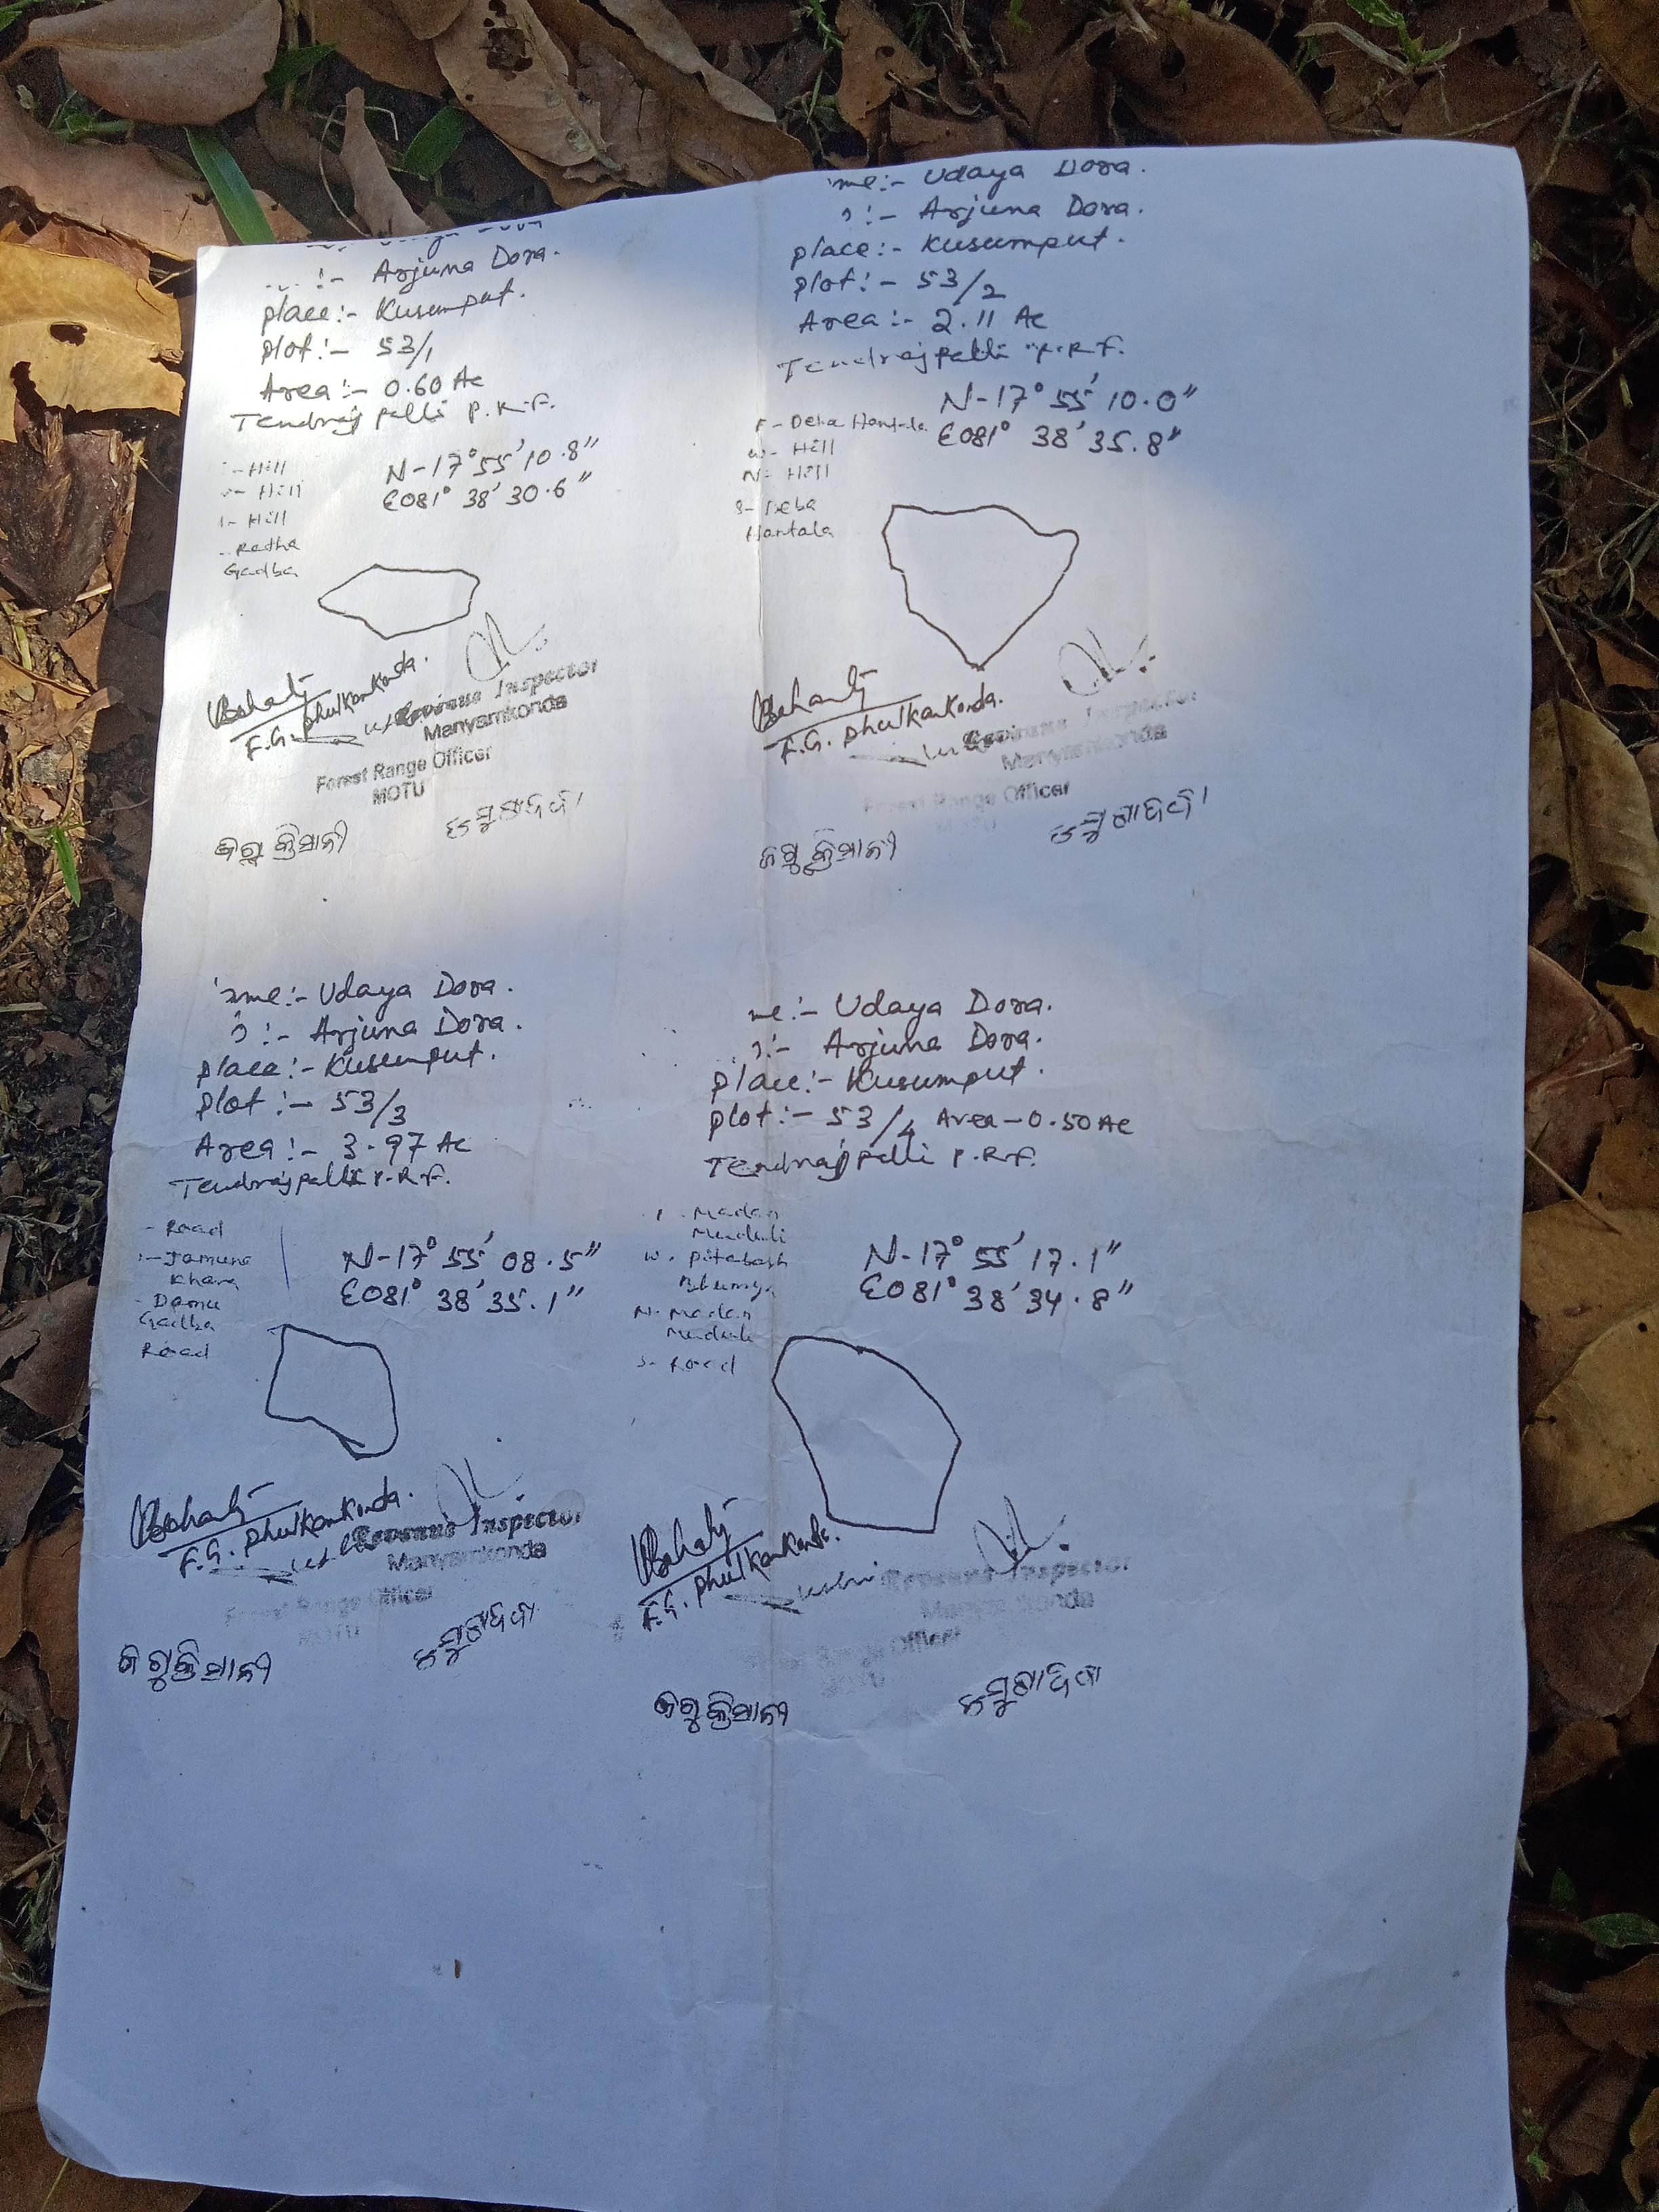 Arjuna Dora.
place:- Kusumput.
plot:- 53/1
Area:- 0.60 Ac
Tendrajpalli P.R.F.
- Hill
- Hill
- Hill
- Radha
Gadba
N-17° 55' 10.8"
E081° 38' 30.6"
F.G. Phulkankonda.
Revenue Inspector
Manyamkonda
Forest Range Officer
MOTU
me:- Udaya Dora.
:- Arjuna Dora.
place:- Kusumput.
plot:- 53/2
Area:- 2.11 Ac
Tendrajpalli P.R.F.
N-17° 55' 10.0"
E081° 38' 35.8"
Hantala
W- Hill
N- Hill
S- Deba
Hantala
F.G. Phulkankonda.
Revenue Inspector
Manyamkonda
Forest Range Officer
MOTU
ame:- Udaya Dora.
:- Arjuna Dora.
place:- Kusumput.
plot:- 53/3
Area:- 3.97 Ac
Tendrajpalli P.R.F.
- Road
- Jamuna
Khara
- Damu
Gadba
Road
N-17° 55' 08.5"
E081° 38' 35.1"
F.G. Phulkankonda.
Revenue Inspector
Manyamkonda
Forest Range Officer
MOTU
me:- Udaya Dora.
:- Arjuna Dora.
place:- Kusumput.
plot:- 53/4 Area-0.50 Ac
Tendrajpalli P.R.F.
Madan
Muduli
W. Pitabash
Bhumya
N- Madan
Muduli
S- Road
N-17° 55' 17.1"
E081° 38' 34.8"
F.G. Phulkankonda.
Revenue Inspector
Manyamkonda
Range Officer